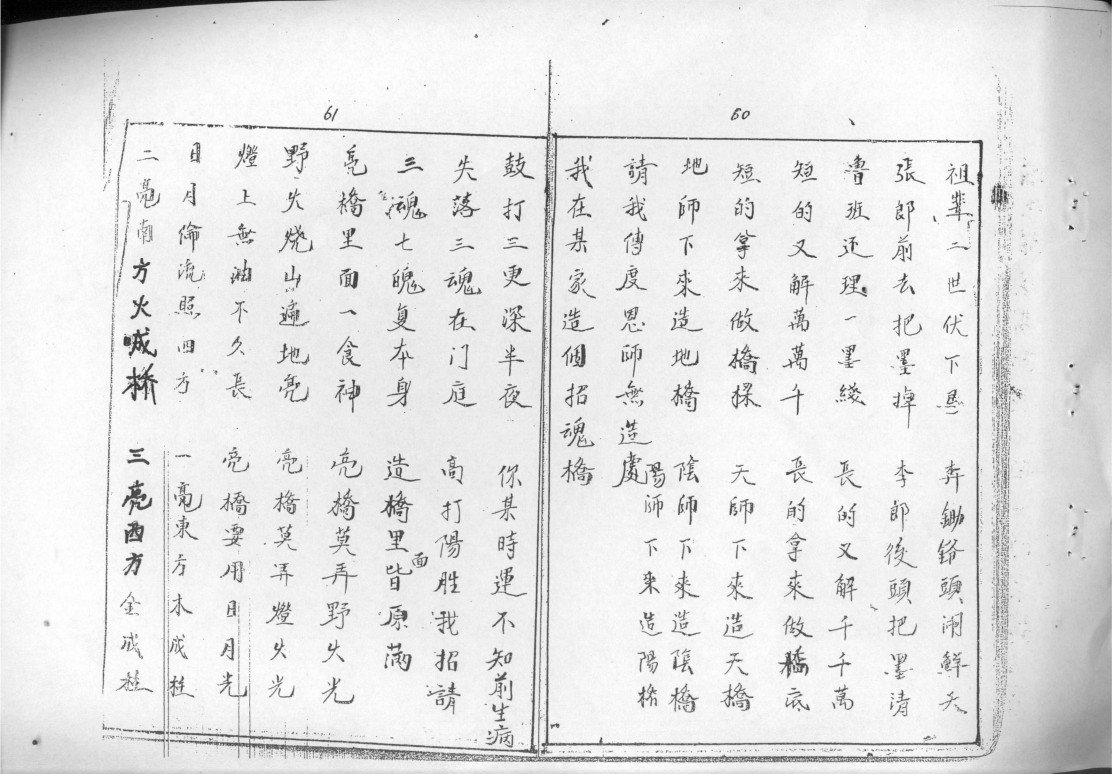 60
祖輩二世伏下凴 弄鋤鉻頭鬧鮮天
張郎前去把墨掉 李郎後頭把墨清
魯班还理一墨綫 長的又解千千萬
短的又解萬萬千 長的拿來做橋底
短的拿來做橋樑 天師下來造天橋
地師下來造地橋 陰師下來造陰橋
陽師下來造陽橋
請我傳度恩師無造處
我在某家造個招魂橋
61
鼓打三更深半夜 你某時運不知前生病
失落三魂在门庭 高打陽胜我招請
三魂七魄复本身 造橋里面皆原滿
亮橋里面一食神 亮橋莫弄野火光
野火烧山遍地亮 亮橋莫弄燈火光
燈上無油不久長 亮橋要用日月光
日月倫流照四方 一亮東方木成桂
二亮南方火成橋 三亮西方金成桂